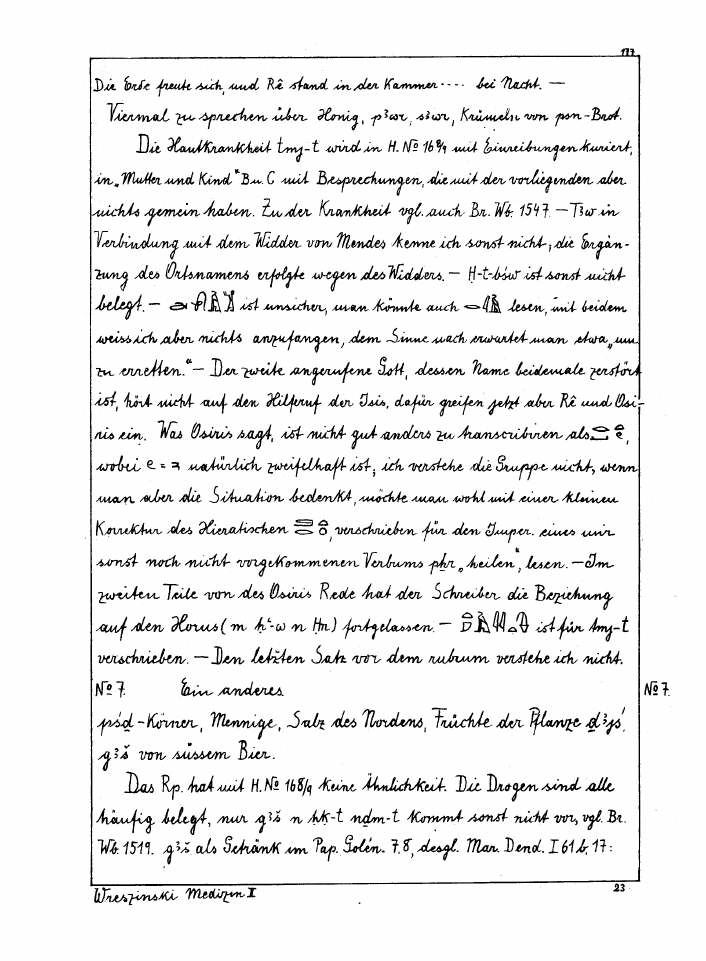 177
Die Erde freute sich, und Rê stand in der Kammer ···· bei Nacht. —
Viermal zu sprechen über Honig, pꜣwr, sꜣwr, Krümeln von psn-Brot.
Die Hautkrankheit tmj-t wird in H. No 168/9 mit Einreibungen kuriert,
in „Mutter und Kind“ B u. C mit Besprechungen, die mit der vorliegenden aber
nichts gemein haben. Zu der Krankheit vgl. auch Br. Wb. 1547. — Tꜣw in
Verbindung mit dem Widder von Mendes kenne ich sonst nicht, die Ergän-
zung des Ortsnamens erfolgte wegen des Widders. — H-t-bśw ist sonst nicht
belegt. — ist unsicher, man könnte auch lesen, mit beidem
weiss ich aber nichts anzufangen, dem Sinne nach erwartet man etwa „um
zu erretten.“ — Der zweite angerufene Gott, dessen Name beidemale zerstört
ist, hört nicht auf den Hilferuf der Isis, dafür greifen jetzt aber Rê und Osi-
ris ein. Was Osiris sagt, ist nicht gut anders zu transcribiren als
wobei natürlich zweifelhaft ist; ich verstehe die Gruppe nicht, wenn
man aber die Situation bedenkt, möchte man wohl mit einer kleinen
Korrektur des Hieratischen , verschrieben für den Imper. eines mir
sonst noch nicht vorgekommenen Verbums pẖr „heilen“, lesen. — Im
zweiten Teile von des Osiris Rede hat der Schreiber die Beziehung
auf den Horus (m ḥʿ-w n Ḥn) fortgelassen. — ist für tmj-t
verschrieben. — Den letzten Satz vor dem rubrum verstehe ich nicht.
No 7. Ein anderes No 7.
pśḏ-Körner, Mennige, Salz des Nordens, Früchte der Pflanze ḏꜣjś,
gꜣš von süssem Bier.
Das Rp. hat mit H. No 168/9 keine Ähnlichkeit. Die Drogen sind alle
häufig belegt, nur gꜣš n ḥḳ-t nḏm-t kommt sonst nicht vor, vgl. Br.
Wb. 1519. gꜣš als Getränk im Pap. Golén. 7,8, desgl. Mar. Dend. I 61 b, 17:
Wreszinski Medizin II 23